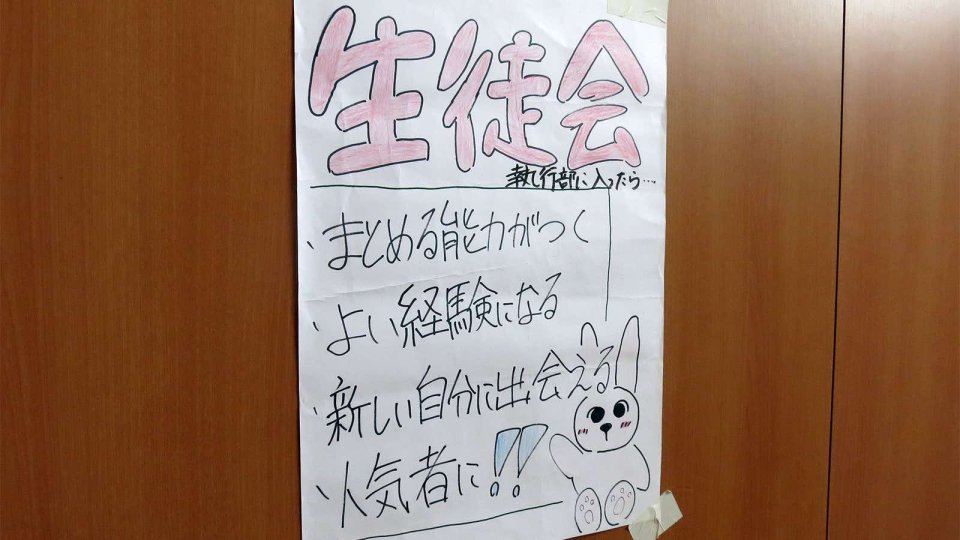 生徒会
執行部に入ったら…
、まとめる能力がつく
、よい経験になる
、新しい自分に出会える
、人気者に!!